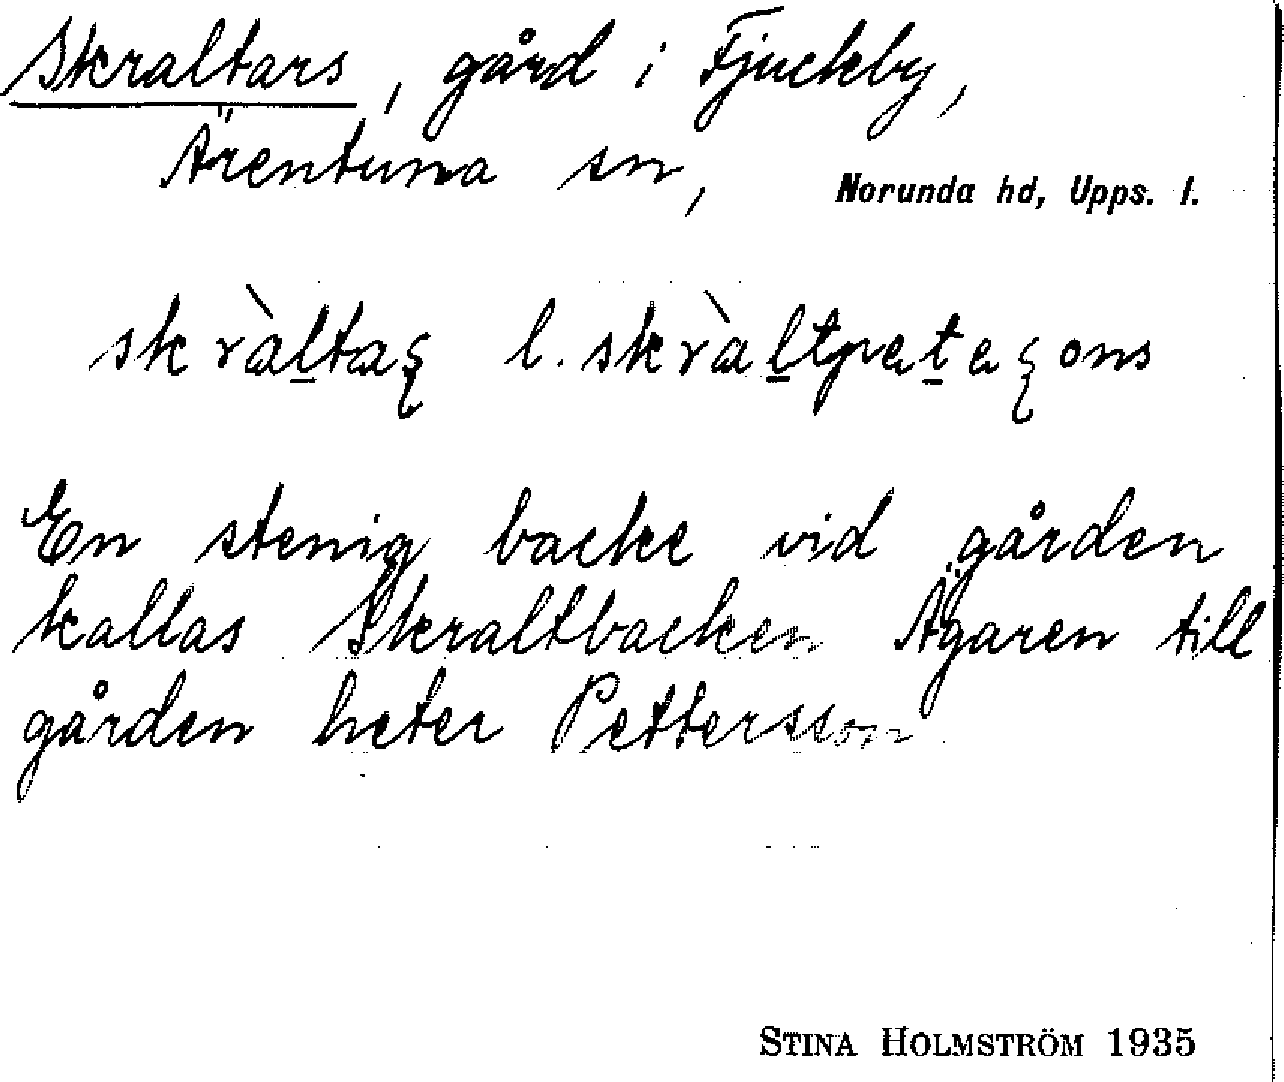 Skraltars, gård i Fjuckby,
Ärentuna sn, Norunda hd, Upps. l.
skràl̠taʂ l. skràl̠tpet̠eʂons
En stenig backe vid gården
kallas Skraltbacken Ägaren till
gården heter Pettersson.
STINA HOLMSTRÖM 1935